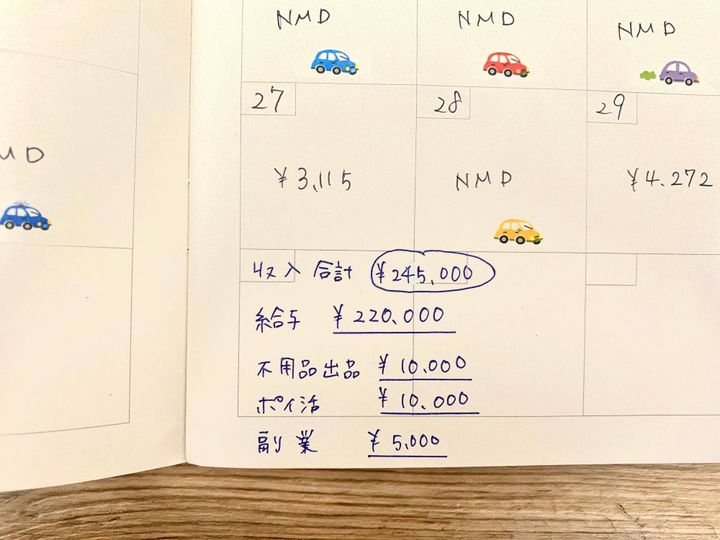 NMD NMD NMD
27 28 29
MD
¥3,115 NMD ¥4.272
収入合計 ¥245,000
給与 ¥220.000
不用品出品 ¥10.000
ポイ活 ¥10.000
副業 ¥5,000